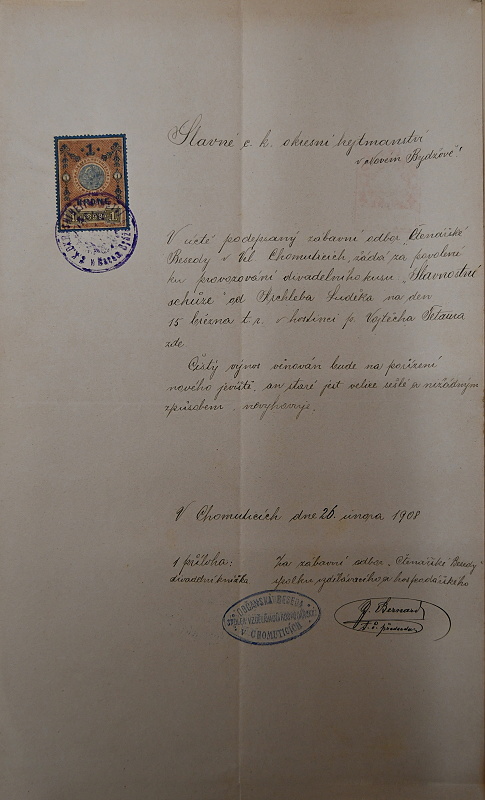 Slavné c. k. okresní hejtmanství
v Novém Bydžově!
1
1 1898 1
V úctě podepsaný zábavní odbor „Čtenářské
Besedy v Vel. Chomuticích, žádá za povolení
ku provozování divadelního kusu „Slavnostní
schůze" od Archleba Luděka na den
15 března t. r. v hostinci p. Vojtěcha Tetaura
zde.
Čistý výnos věnován bude na pořízení
nového jeviště, an staré jest velice sešlé a nižádným
způsobem nevyhovuje.
V Chomuticích dne 26. února 1908
1 příloha:
divadelní knížka
Za zábavní odbor „Čtenářské Besedy"
spolku vzdělávacího a hospodářského
OBČANSKÁ BESEDA
SPOLEK VZDĚLÁVACÍ A HOSPODÁŘSKÝ
V CHOMUTICÍCH
J. Bernard
t. č. předseda